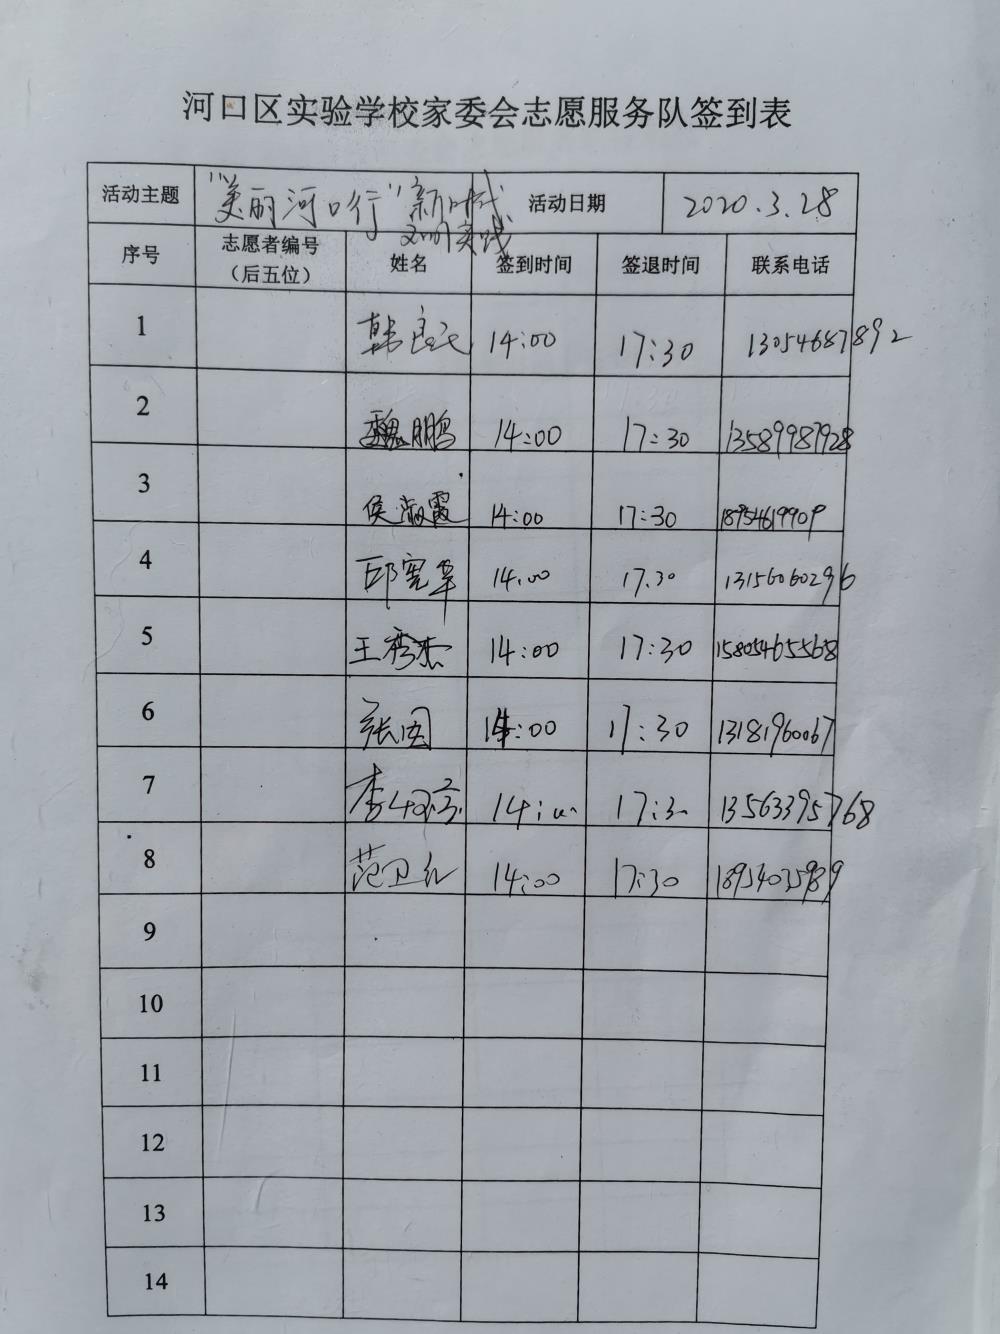 河口区实验学校家委会志愿服务队签到表
活动主题 "美丽河口行"新时代文明实践 活动日期 2020.3.28
序号 志愿者编号（后五位） 姓名 签到时间 签退时间 联系电话
1 韩良 14:00 17:30 13054687892
2 魏鹏 14:00 17:30 13589987928
3 侯淑霞 14:00 17:30 18954619909
4 邱宪华 14.00 17.30 13156060296
5 王秀杰 14:00 17:30 15805465568
6 张国 14:00 17:30 13181960067
7 李 14:00 17:30 13563395768
8 范卫红 14:00 17:30 18954035989
9
10
11
12
13
14